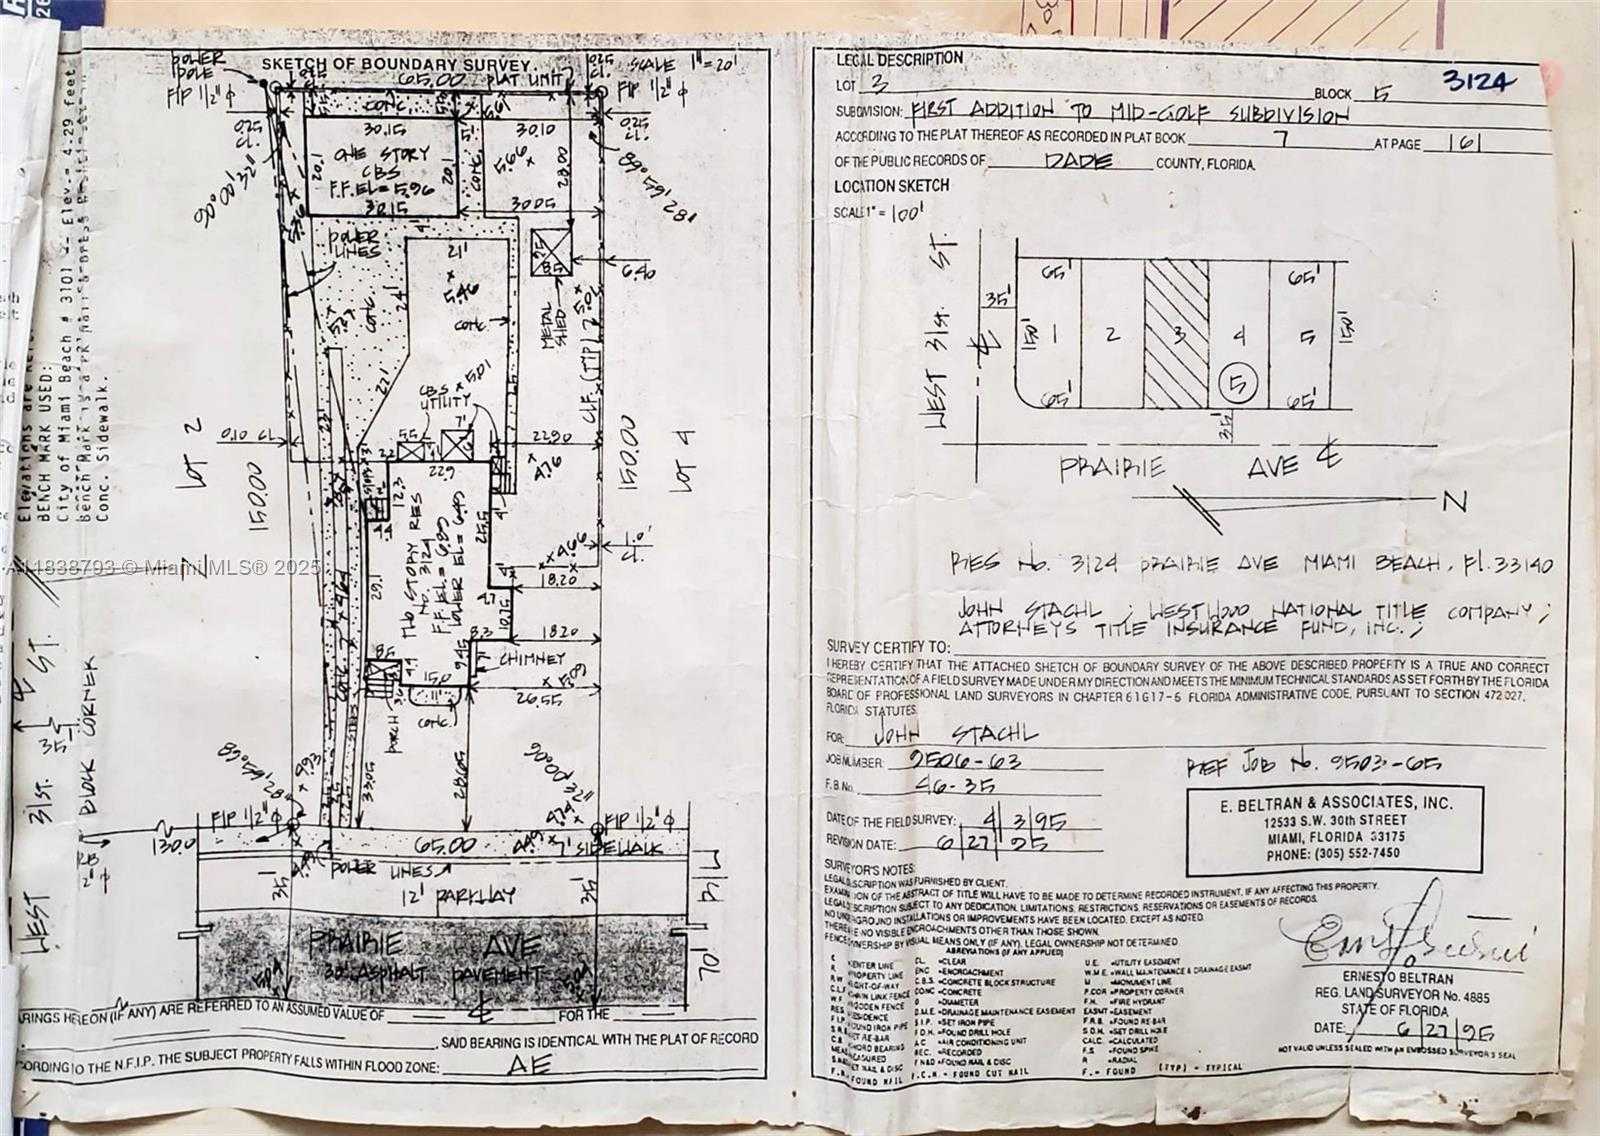 SKETCH OF BOUNDARY SURVEY.
SCALE 1"=20'
POWER
POLE
FIP 1/2" Ø
65.00
PLAT LIMIT
FIP 1/2" Ø
CONC.
0.25
CL.
30.15
30.10
0.25
CL.
ONE STORY
CBS
F.F.EL=5.96
30.15
20.1
20.1
CONC.
5.66
28.00
30.05
90°00'32"
89°59'28"
POWER
LINES
21'
5.46
24'
CONC.
CONC.
8.5
METAL
SHED
6.40
CLF (TYP)
22'
CBS
UTILITY
5.01
7'
5.5
0.10 CL.
22.90
4.76
22.9
LOT 2
150.00
150.00
LOT 4
12.3
25.5
TWO STORY RES
No. 3124
F.F.EL.= 6.85
LOWER EL= 6.45
29.1
4.66
1.0'
CL.
18.20
10.75
18.20
8.3
9.45
CHIMNEY
8.5
15.0
26.55
PORCH
CONC.
N
WEST 31 ST. ST.
35'
BLOCK CORNER
89°59'28"
4.93
33.05
28.65
90°00'32"
FIP 1/2" Ø
FIP 1/2" Ø
130.0
65.00
7' SIDEWALK
POWER LINES
12' PARKWAY
35'
35'
70'
PRAIRIE AVE
30' ASPHALT PAVEMENT
Elevations are
BENCH MARK USED:
City of Miami Beach # 3101 -- Elev.= 4.29 feet
Bench Mark is a
Conc. Sidewalk.
ARINGS HEREON (IF ANY) ARE REFERRED TO AN ASSUMED VALUE OF FOR THE
SAID BEARING IS IDENTICAL WITH THE PLAT OF RECORD
CORDING TO THE N.F.I.P. THE SUBJECT PROPERTY FALLS WITHIN FLOOD ZONE: AE
LEGAL DESCRIPTION
LOT 3 BLOCK 5 3124
SUBDIVISION: FIRST ADDITION TO MID-GOLF SUBDIVISION
ACCORDING TO THE PLAT THEREOF AS RECORDED IN PLAT BOOK 7 AT PAGE 161
OF THE PUBLIC RECORDS OF DADE COUNTY, FLORIDA.
LOCATION SKETCH
SCALE 1" = 100'
WEST 31 st. ST.
35'
65' 65'
150' 1 2 3 4 5 150'
5
65' 65'
35'
PRAIRIE AVE
N
RES No. 3124 PRAIRIE AVE MIAMI BEACH, Fl. 33140
JOHN STACHL ; WESTWOOD NATIONAL TITLE COMPANY ;
ATTORNEYS TITLE INSURANCE FUND, INC. ;
SURVEY CERTIFY TO:
I HEREBY CERTIFY THAT THE ATTACHED SKETCH OF BOUNDARY SURVEY OF THE ABOVE DESCRIBED PROPERTY IS A TRUE AND CORRECT
REPRESENTATION OF A FIELD SURVEY MADE UNDER MY DIRECTION AND MEETS THE MINIMUM TECHNICAL STANDARDS AS SET FORTH BY THE FLORIDA
BOARD OF PROFESSIONAL LAND SURVEYORS IN CHAPTER 61G17-6 FLORIDA ADMINISTRATIVE CODE, PURSUANT TO SECTION 472.027,
FLORIDA STATUTES.
FOR: JOHN STACHL
JOB NUMBER: 9506-63
REF JOB No. 9503-65
F.B No. 46-35
DATE OF THE FIELD SURVEY: 4/3/95
REVISION DATE: 6/27/95
E. BELTRAN & ASSOCIATES, INC.
12533 S.W. 30th STREET
MIAMI, FLORIDA 33175
PHONE: (305) 552-7450
SURVEYOR'S NOTES:
LEGAL DESCRIPTION WAS FURNISHED BY CLIENT.
EXAMINATION OF THE ABSTRACT OF TITLE WILL HAVE TO BE MADE TO DETERMINE RECORDED INSTRUMENT, IF ANY AFFECTING THIS PROPERTY.
LEGAL DESCRIPTION SUBJECT TO ANY DEDICATION, LIMITATIONS, RESTRICTIONS, RESERVATIONS OR EASEMENTS OF RECORDS.
NO UNDERGROUND INSTALLATIONS OR IMPROVEMENTS HAVE BEEN LOCATED, EXCEPT AS NOTED.
THERE ARE NO VISIBLE ENCROACHMENTS OTHER THAN THOSE SHOWN.
FENCE OWNERSHIP BY VISUAL MEANS ONLY (IF ANY). LEGAL OWNERSHIP NOT DETERMINED
ABBREVIATIONS (IF ANY APPLIED)
CL. =CLEAR
ENC =ENCROACHMENT
C.B.S. =CONCRETE BLOCK STRUCTURE
CONC =CONCRETE
Ø =DIAMETER
D.M.E. =DRAINAGE MAINTENANCE EASEMENT
S.I.P. =SET IRON PIPE
F.D.H. =FOUND DRILL HOLE
A.C =AIR CONDITIONING UNIT
REC. =RECORDED
FN&D =FOUND NAIL & DISC
F.C.N - FOUND CUT NAIL
U.E =UTILITY EASEMENT
W.M.E. =WALL MAINTENANCE & DRAINAGE EASMT
M =MONUMENT LINE
P.COR =PROPERTY CORNER
F.H. =FIRE HYDRANT
EASMT =EASEMENT
F.R.B =FOUND RE-BAR
S.D.H. =SET DRILL HOLE
CALC. =CALCULATED
F.S =FOUND SPIKE
R =RADIAL
F. - FOUND (TYP) - TYPICAL
ERNESTO BELTRAN
REG. LAND SURVEYOR No. 4885
STATE OF FLORIDA
DATE: 6/27/95
NOT VALID UNLESS SEALED WITH AN EMBOSSED SURVEYOR'S SEAL
A11838793 © Miami MLS® 2025